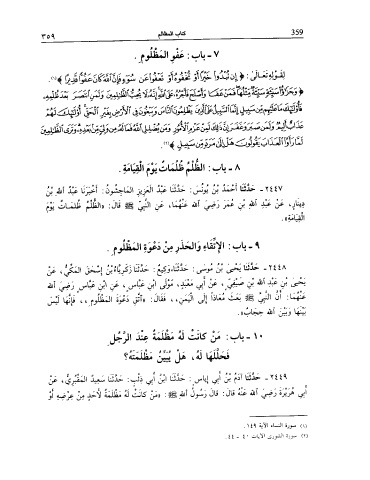 ٣٥٩ كتاب المظالم 359
٧ - باب : عَفْوِ المَظْلُومِ .
لِقَوْلِهِ تَعَالَى : ﴿ إِن تُبْدُوا خَيْرًا أَوْ تُخْفُوهُ أَوْ تَعْفُوا عَن سُوءٍ فَإِنَّ اللَّهَ كَانَ عَفُوًّا قَدِيرًا ﴾(١).
﴿ وَجَزَاءُ سَيِّئَةٍ سَيِّئَةٌ مِثْلُهَا فَمَنْ عَفَا وَأَصْلَحَ فَأَجْرُهُ عَلَى اللَّهِ إِنَّهُ لَا يُحِبُّ الظَّالِمِينَ وَلَمَنِ انتَصَرَ بَعْدَ ظُلْمِهِ
فَأُولَئِكَ مَا عَلَيْهِم مِن سَبِيلٍ إِنَّمَا السَّبِيلُ عَلَى الَّذِينَ يَظْلِمُونَ النَّاسَ وَيَبْغُونَ فِي الْأَرْضِ بِغَيْرِ الْحَقِّ أُولَئِكَ لَهُمْ
عَذَابٌ أَلِيمٌ وَلَمَن صَبَرَ وَغَفَرَ إِنَّ ذَلِكَ لَمِنْ عَزْمِ الْأُمُورِ وَمَن يُضْلِلِ اللَّهُ فَمَا لَهُ مِن وَلِيٍّ مِن بَعْدِهِ وَتَرَى الظَّالِمِينَ
لَمَّا رَأَوُا الْعَذَابَ يَقُولُونَ هَلْ إِلَى مَرَدٍّ مِن سَبِيلٍ ﴾(٢).
٨ - باب : الظُّلْمُ ظُلُمَاتٌ يَوْمَ القِيَامَةِ .
٢٤٤٧ - حَدَّثَنَا أَحْمَدُ بْنُ يُونُسَ : حَدَّثَنَا عَبْدُ العَزِيزِ المَاجِشُونُ : أَخْبَرَنَا عَبْدُ اللهِ بْنُ
دِينَارٍ ، عَنْ عَبْدِ اللهِ بْنِ عُمَرَ رَضِيَ اللهُ عَنْهُمَا ، عَنِ النَّبِيِّ ﷺ قَالَ : «الظُّلْمُ ظُلُمَاتٌ يَوْمَ
القِيَامَةِ» .
٩ - باب : الإِتِّقَاءِ وَالحَذَرِ مِنْ دَعْوَةِ المَظْلُومِ .
٢٤٤٨ - حَدَّثَنَا يَحْيَى بْنُ مُوسَى : حَدَّثَنَا وَكِيعٌ : حَدَّثَنَا زَكَرِيَّاءُ بْنُ إِسْحَقَ المَكِّيُّ ، عَنْ
يَحْيَى بْنِ عَبْدِ اللهِ بْنِ صَيْفِيٍّ ، عَنْ أَبِي مَعْبَدٍ ، مَوْلَى ابْنِ عَبَّاسٍ ، عَنِ ابْنِ عَبَّاسٍ رَضِيَ اللهُ
عَنْهُمَا : أَنَّ النَّبِيَّ ﷺ بَعَثَ مُعَاذًا إِلَى اليَمَنِ ، فَقَالَ : «اتَّقِ دَعْوَةَ المَظْلُومِ ، فَإِنَّهَا لَيْسَ
بَيْنَهَا وَبَيْنَ اللهِ حِجَابٌ» .
١٠ - باب : مَنْ كَانَتْ لَهُ مَظْلَمَةٌ عِنْدَ الرَّجُلِ
فَحَلَّلَهَا لَهُ ، هَلْ يُبَيِّنُ مَظْلَمَتَهُ؟
٢٤٤٩ - حَدَّثَنَا آدَمُ بْنُ أَبِي إِيَاسٍ : حَدَّثَنَا ابْنُ أَبِي ذِئْبٍ : حَدَّثَنَا سَعِيدٌ المَقْبُرِيُّ ، عَنْ
أَبِي هُرَيْرَةَ رَضِيَ اللهُ عَنْهُ قَالَ : قَالَ رَسُولُ اللهِ ﷺ : «مَنْ كَانَتْ لَهُ مَظْلَمَةٌ لِأَحَدٍ مِنْ عِرْضِهِ أَوْ
(١) سورة النساء الآية ١٤٩.
(٢) سورة الشورى الآيات ٤٠ - ٤٤.